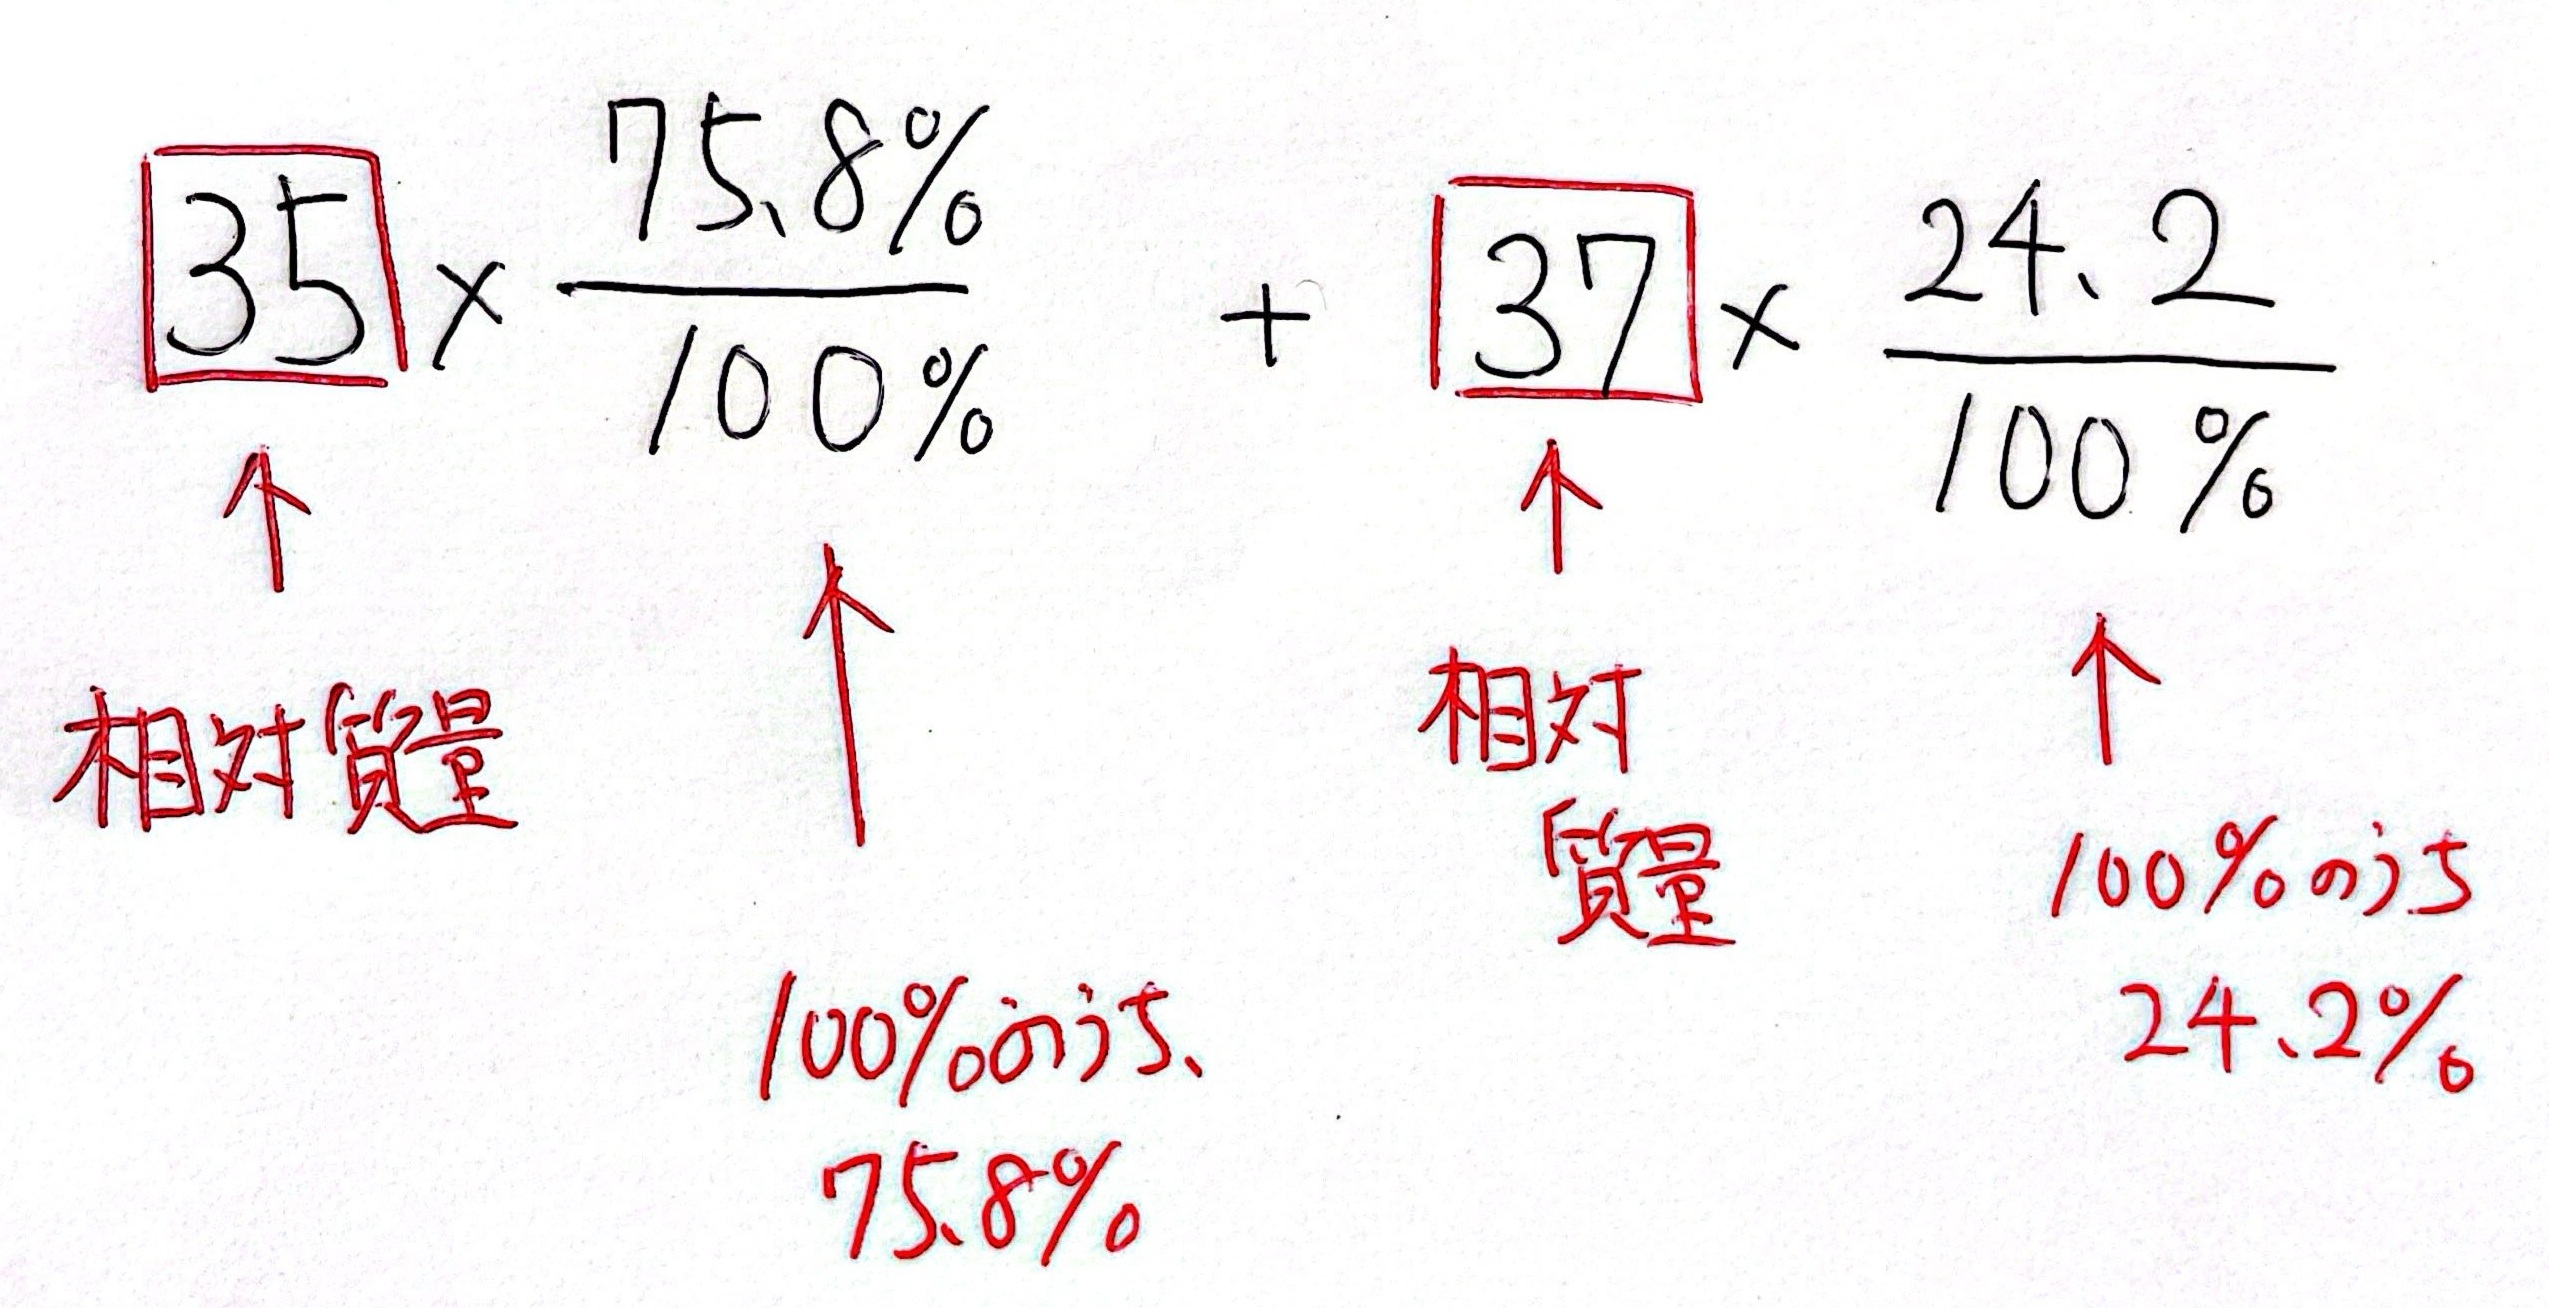 35 × 75.8% / 100% + 37 × 24.2 / 100%
相対質量
100%のうち、
75.8%
相対
質量
100%のうち
24.2%